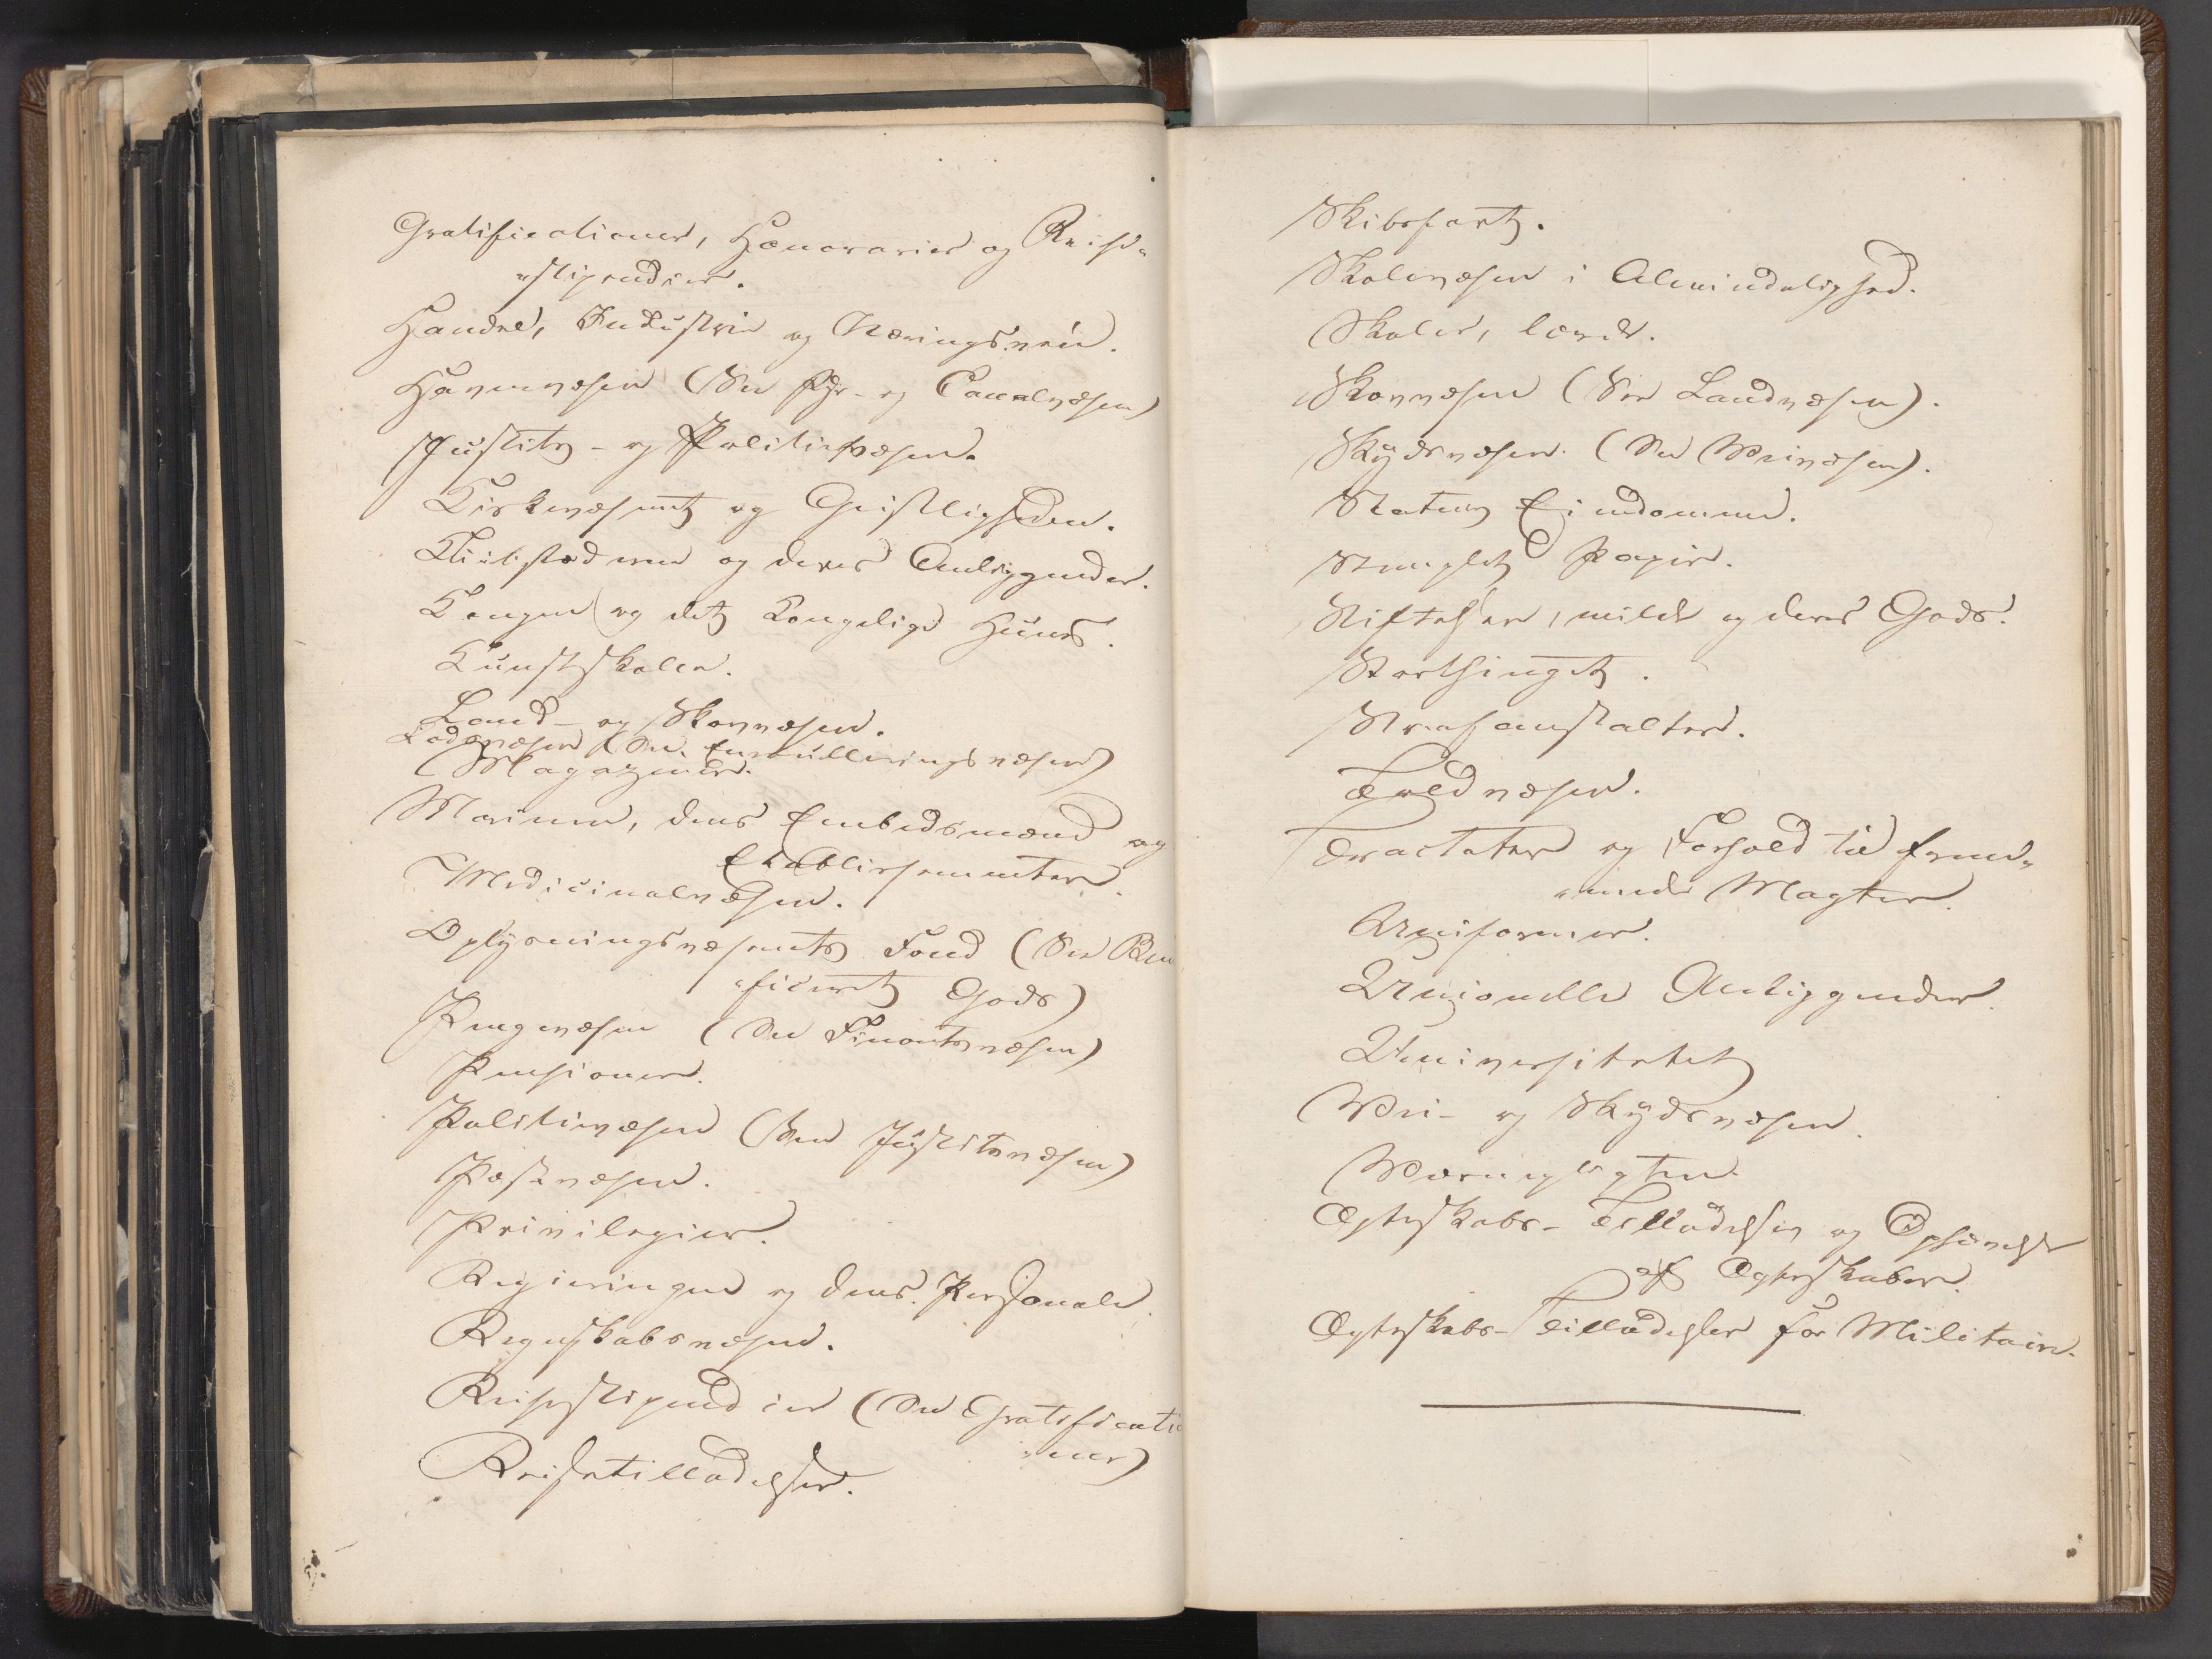 Gratificationer, Honorarier og Reise-
stipendier.
Handel, Industrie og Næringsveie.
Havnevæsen (See Fyr- og Canalvæsen)
Justits- og Politievæsen.
Kirkevæsenet og Geistligheden.
Kjøbstæderne og deres Anliggender.
Kongen og det Kongelige Huus.
Kunstskolen.
Land- og Skovvæsen.
Lodsvæsen (See Enrulleringsvæsen)
Magaziner.
Marinen, dens Embedsmænd og
Etablissementer.
Medicinalvæsen.
Oplysningsvæsenets Fond (See Bene
ficeret Gods)
Pengevæsen (See Finantsvæsen)
Pensioner.
Politievæsen (See Justitsvæsen)
Postvæsen.
Privilegier.
Regjeringen og dens Personale.
Regnskabsvæsen.
Reisestipendier (See Gratificatio
ner)
Reisetilladelser.
Skibsfart.
Skolevæsen i Almindelighed.
Skoler, lærde.
Skovvæsen (See Landvæsen).
Skydsvæsen. (See Veivæsen).
Statens Eiendomme.
Stemplet Papir.
Stiftelser, milde og deres Gods.
Storthinget.
Strafanstalter.
Toldvæsen.
Tractater og Forhold til frem-
mede Magter.
Uniformer.
Unionelle Anliggender.
Universitetet
Vei- og Skydsvæsen.
Værnepligten.
Ægteskabs- Tilladelser og Ophævelse
af Ægteskaber.
Ægteskabs- Tilladelser for Militaire.